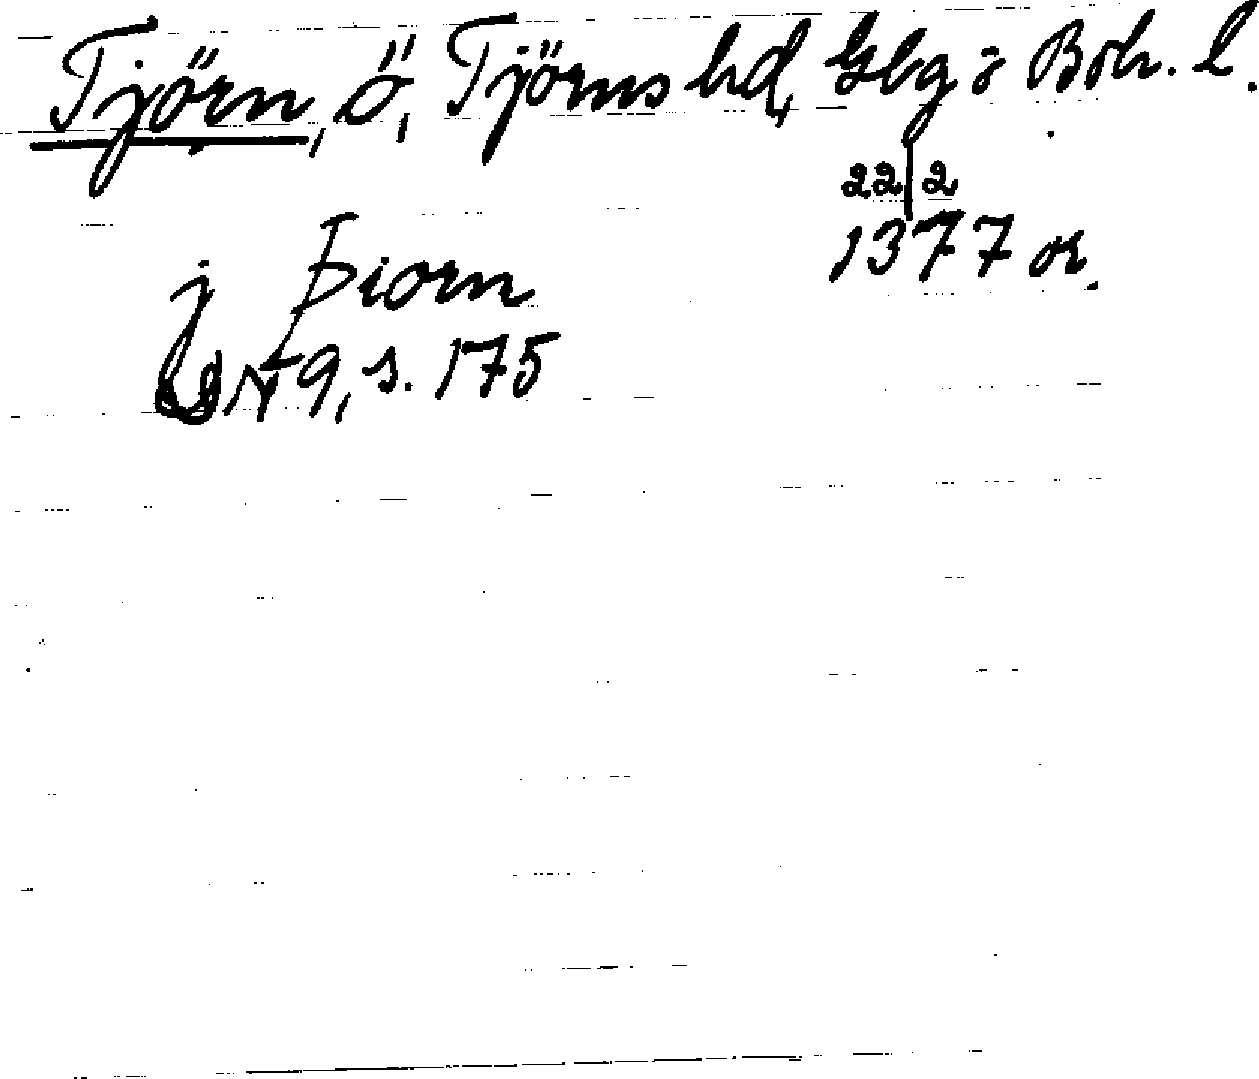 Tjörn, ö, Tjörns hd, Gbg o Boh. l.
22/2
1377 or.
j Þiorn
DN 9, s. 175